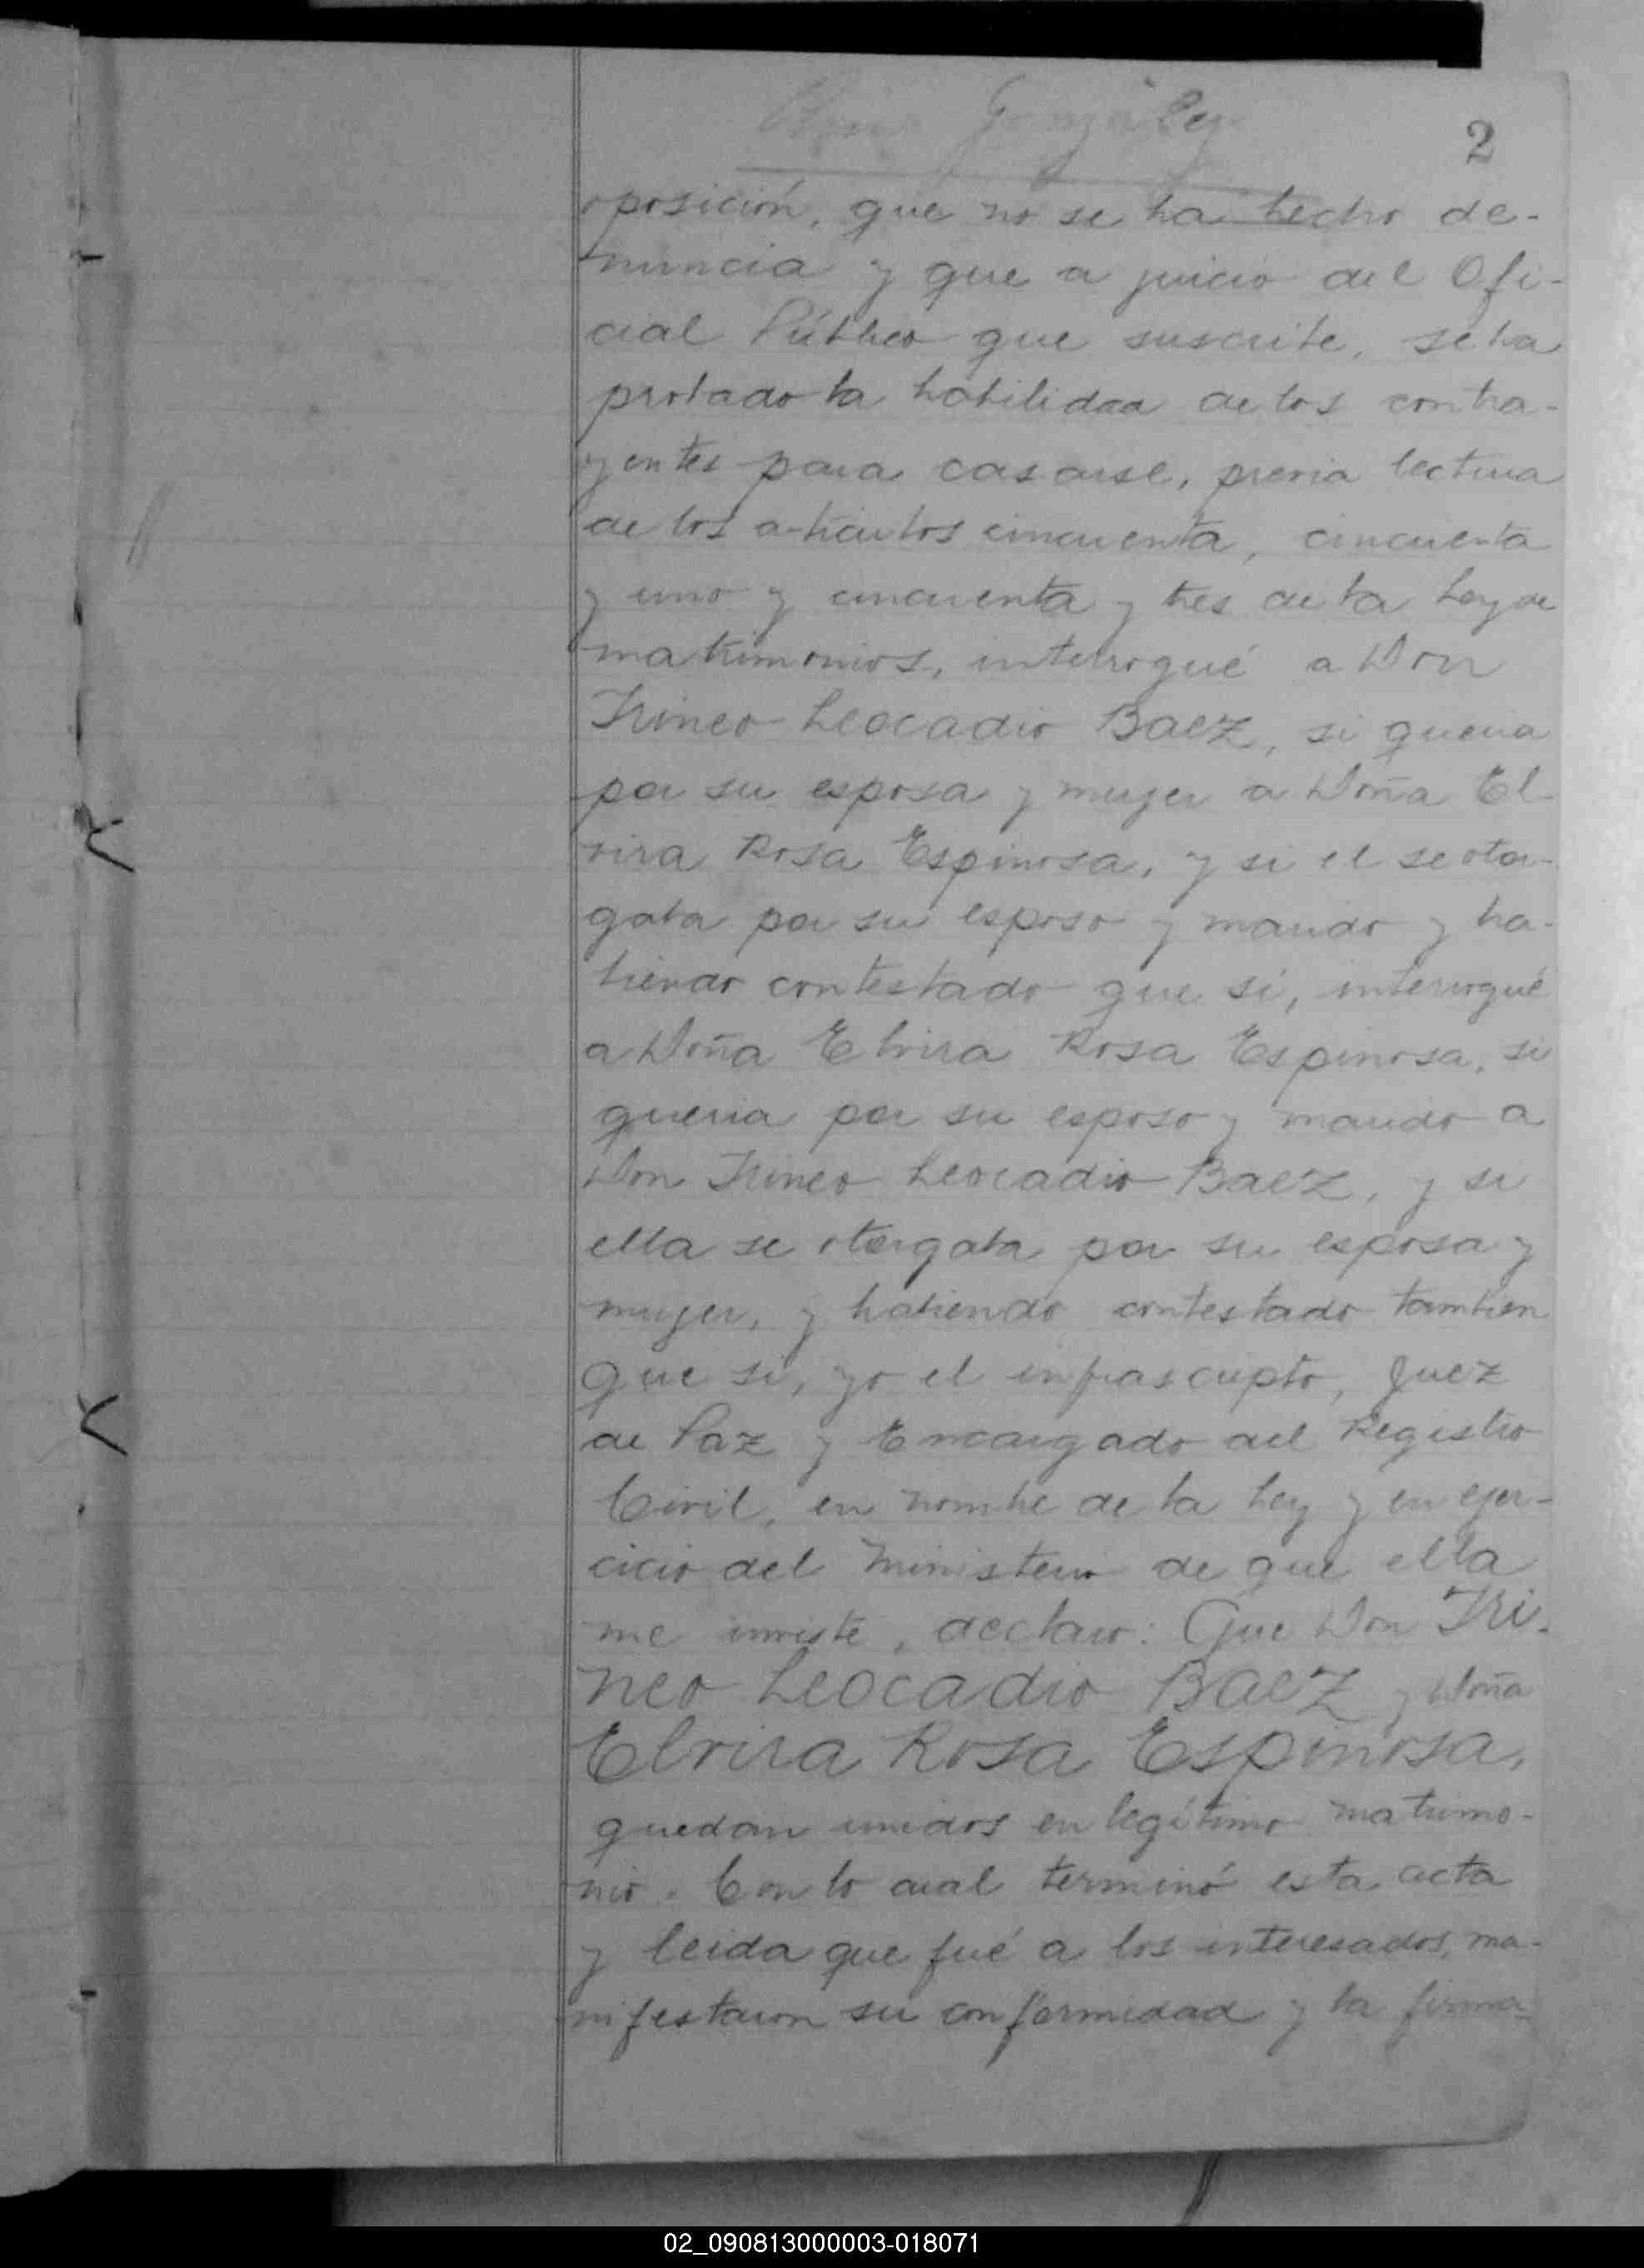 González
2
oposición, que no se ha hecho de-
nuncia y que a juicio del Ofi-
cial Público que suscribe, se ha
probado la habilidad de los contra-
yentes para casarse, previa lectura
de los artículos cincuenta, cincuenta
y uno y cincuenta y tres de la Ley de
matrimonios, interrogué a Don
Irineo Leocadio Baez, si queria
por su esposa y mujer a Doña El-
vira Rosa Espinosa, y si el se otor-
gaba por su esposo y marido y ha-
biendo contestado que si, interrogué
a Doña Elvira Rosa Espinosa, si
queria por su esposo y marido a
Don Irineo Leocadio Baez, y si
ella se otorgaba por su esposa y
mujer, y habiendo contestado tambien
que si, yo el infrascripto, Juez
de Paz y Encargado del Registro
Civil, en nombre de la Ley y en ejer-
cicio del Ministerio de que ella
me inviste, declaro: Que Don Iri-
neo Leocadio Baez y Doña
Elvira Rosa Espinosa,
quedan unidos en legítimo matrimo-
nio. Con lo cual terminó esta acta
y leida que fué a los interesados, ma-
nifestaron su conformidad y la firma-
02_090813000003-018071